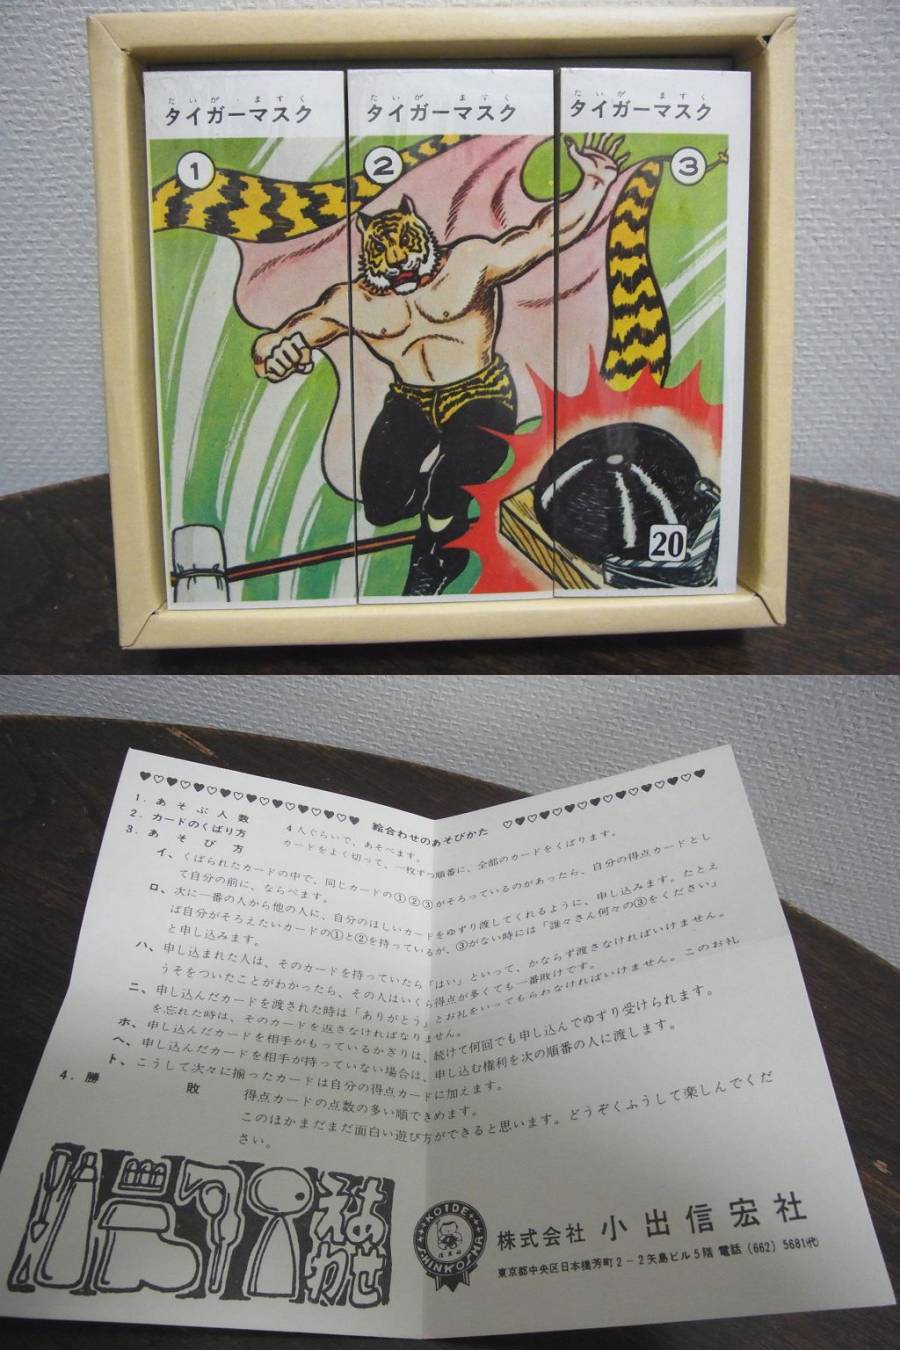 たいがー ますく
タイガーマスク
たいがー ますく
タイガーマスク
たいがー ますく
タイガーマスク
1
2
3
20
絵合わせのあそびかた
1. あそぶ人数 4人ぐらいで、あそべます。
2. カードのくばり方 カードをよく切って、一枚ずつ順番に、全部のカードをくばります。
3. あそび方
イ、くばられたカードの中で、同じカードの①②③がそろっているのがあったら、自分の得点カードとし
て自分の前に、ならべます。
ロ、次に一番の人から他の人に、自分のほしいカードをゆずり渡してくれるように、申し込みます。たとえ
ば自分がそろえたいカードの①と②を持っているが、③がない時には「誰々さん何々の③をください」
と申し込みます。
ハ、申し込まれた人は、そのカードを持っていたら「はい」といって、かならず渡さなければいけません。
うそをついたことがわかったら、その人はいくら得点が多くても一番敗けです。
ニ、申し込んだカードを渡された時は「ありがとう」とお礼をいってもらわなければいけません。このお礼
を忘れた時は、そのカードを返さなければなりません。
ホ、申し込んだカードを相手がもっているかぎりは、続けて何回でも申し込んでゆずり受けられます。
ヘ、申し込んだカードを相手が持っていない場合は、申し込む権利を次の順番の人に渡します。
ト、こうして次々に揃ったカードは自分の得点カードに加えます。
4. 勝敗 得点カードの点数の多い順できめます。
このほかまだまだ面白い遊び方ができると思います。どうぞくふうして楽しんでくだ
さい。
えあわせ
KOIDE
SHINKOSHA
株式会社 小出信宏社
東京都中央区日本橋芳町2-2矢島ビル5階 電話 (662) 5681代